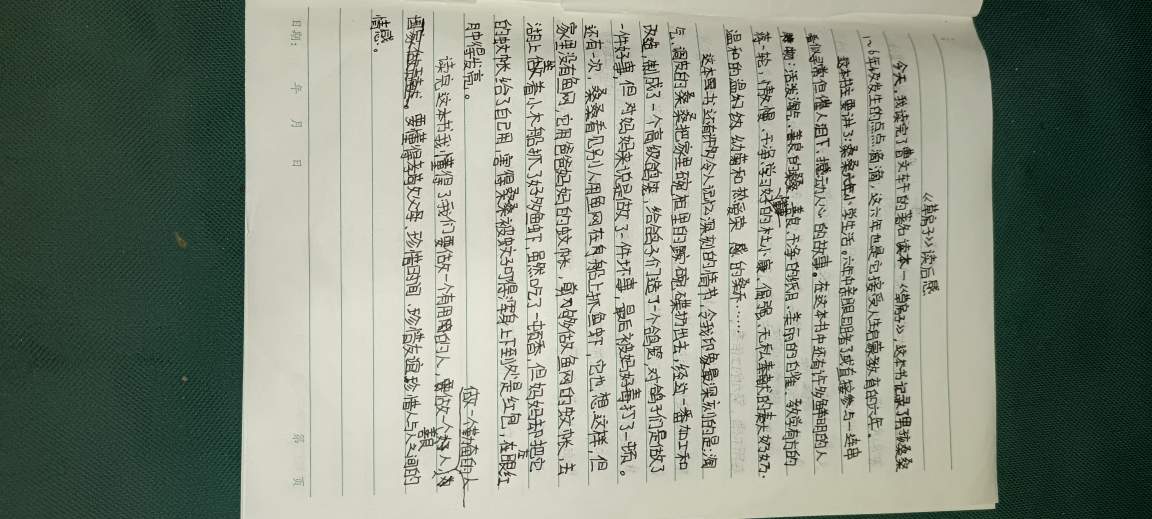 《草房子》读后感
今天，我读完了曹文轩的著名读本—《草房子》，这本书记录了男孩桑桑
1~6年级发生的点点滴滴，这六年也是它接受人生启蒙教育的六年。
这本书主要讲了：桑桑六年小学生活。六年中亲眼目睹了或直接参与一连串
看似寻常但催人泪下、撼动人心的故事。在这本书中还有许多鲜明的人
物：活泼淘气、善良的桑桑，善良、干净的纸月、美丽的白雀、教学有方的
蒋一轮，慢、干净、学习好的杜小康，倔强、无私奉献的秦大奶奶、
温和的温幼菊和热爱荣 感的桑乔……
这本图书还有许多令人记忆深刻的情节，令我印象最深刻的是：淘
气、调皮的桑桑把家里的柜里的碗、碟扔出去，经过一番加工和
改造，制成了一个高级鸽笼，给鸽子们造了一个鸽窝，对鸽子们是做了
一件好事，但对妈妈来说是做了一件坏事，最后被妈妈毒打了一顿。
还有一次，桑桑看见别人用鱼网在船上抓鱼虾，它也想这样，但
家里没有鱼网，它用爸爸妈妈的蚊帐，剪成够做鱼网的蚊帐，去
湖上坐着小木船抓了好多鱼虾，虽然吃了一顿香，但妈妈却把它
的蚊帐给了自己用，害得桑桑被蚊子叮得浑身上下到处是红包，在眼红
肿得发亮。
做一个勤奋的人
读完这本书我懂得了我们要做一个有用的人，要做一个善良人，为
国家做贡献。要懂得为人处事、珍惜时间、珍惜友谊、珍惜人与人之间的
情感。
日期： 年 月 日
第 页